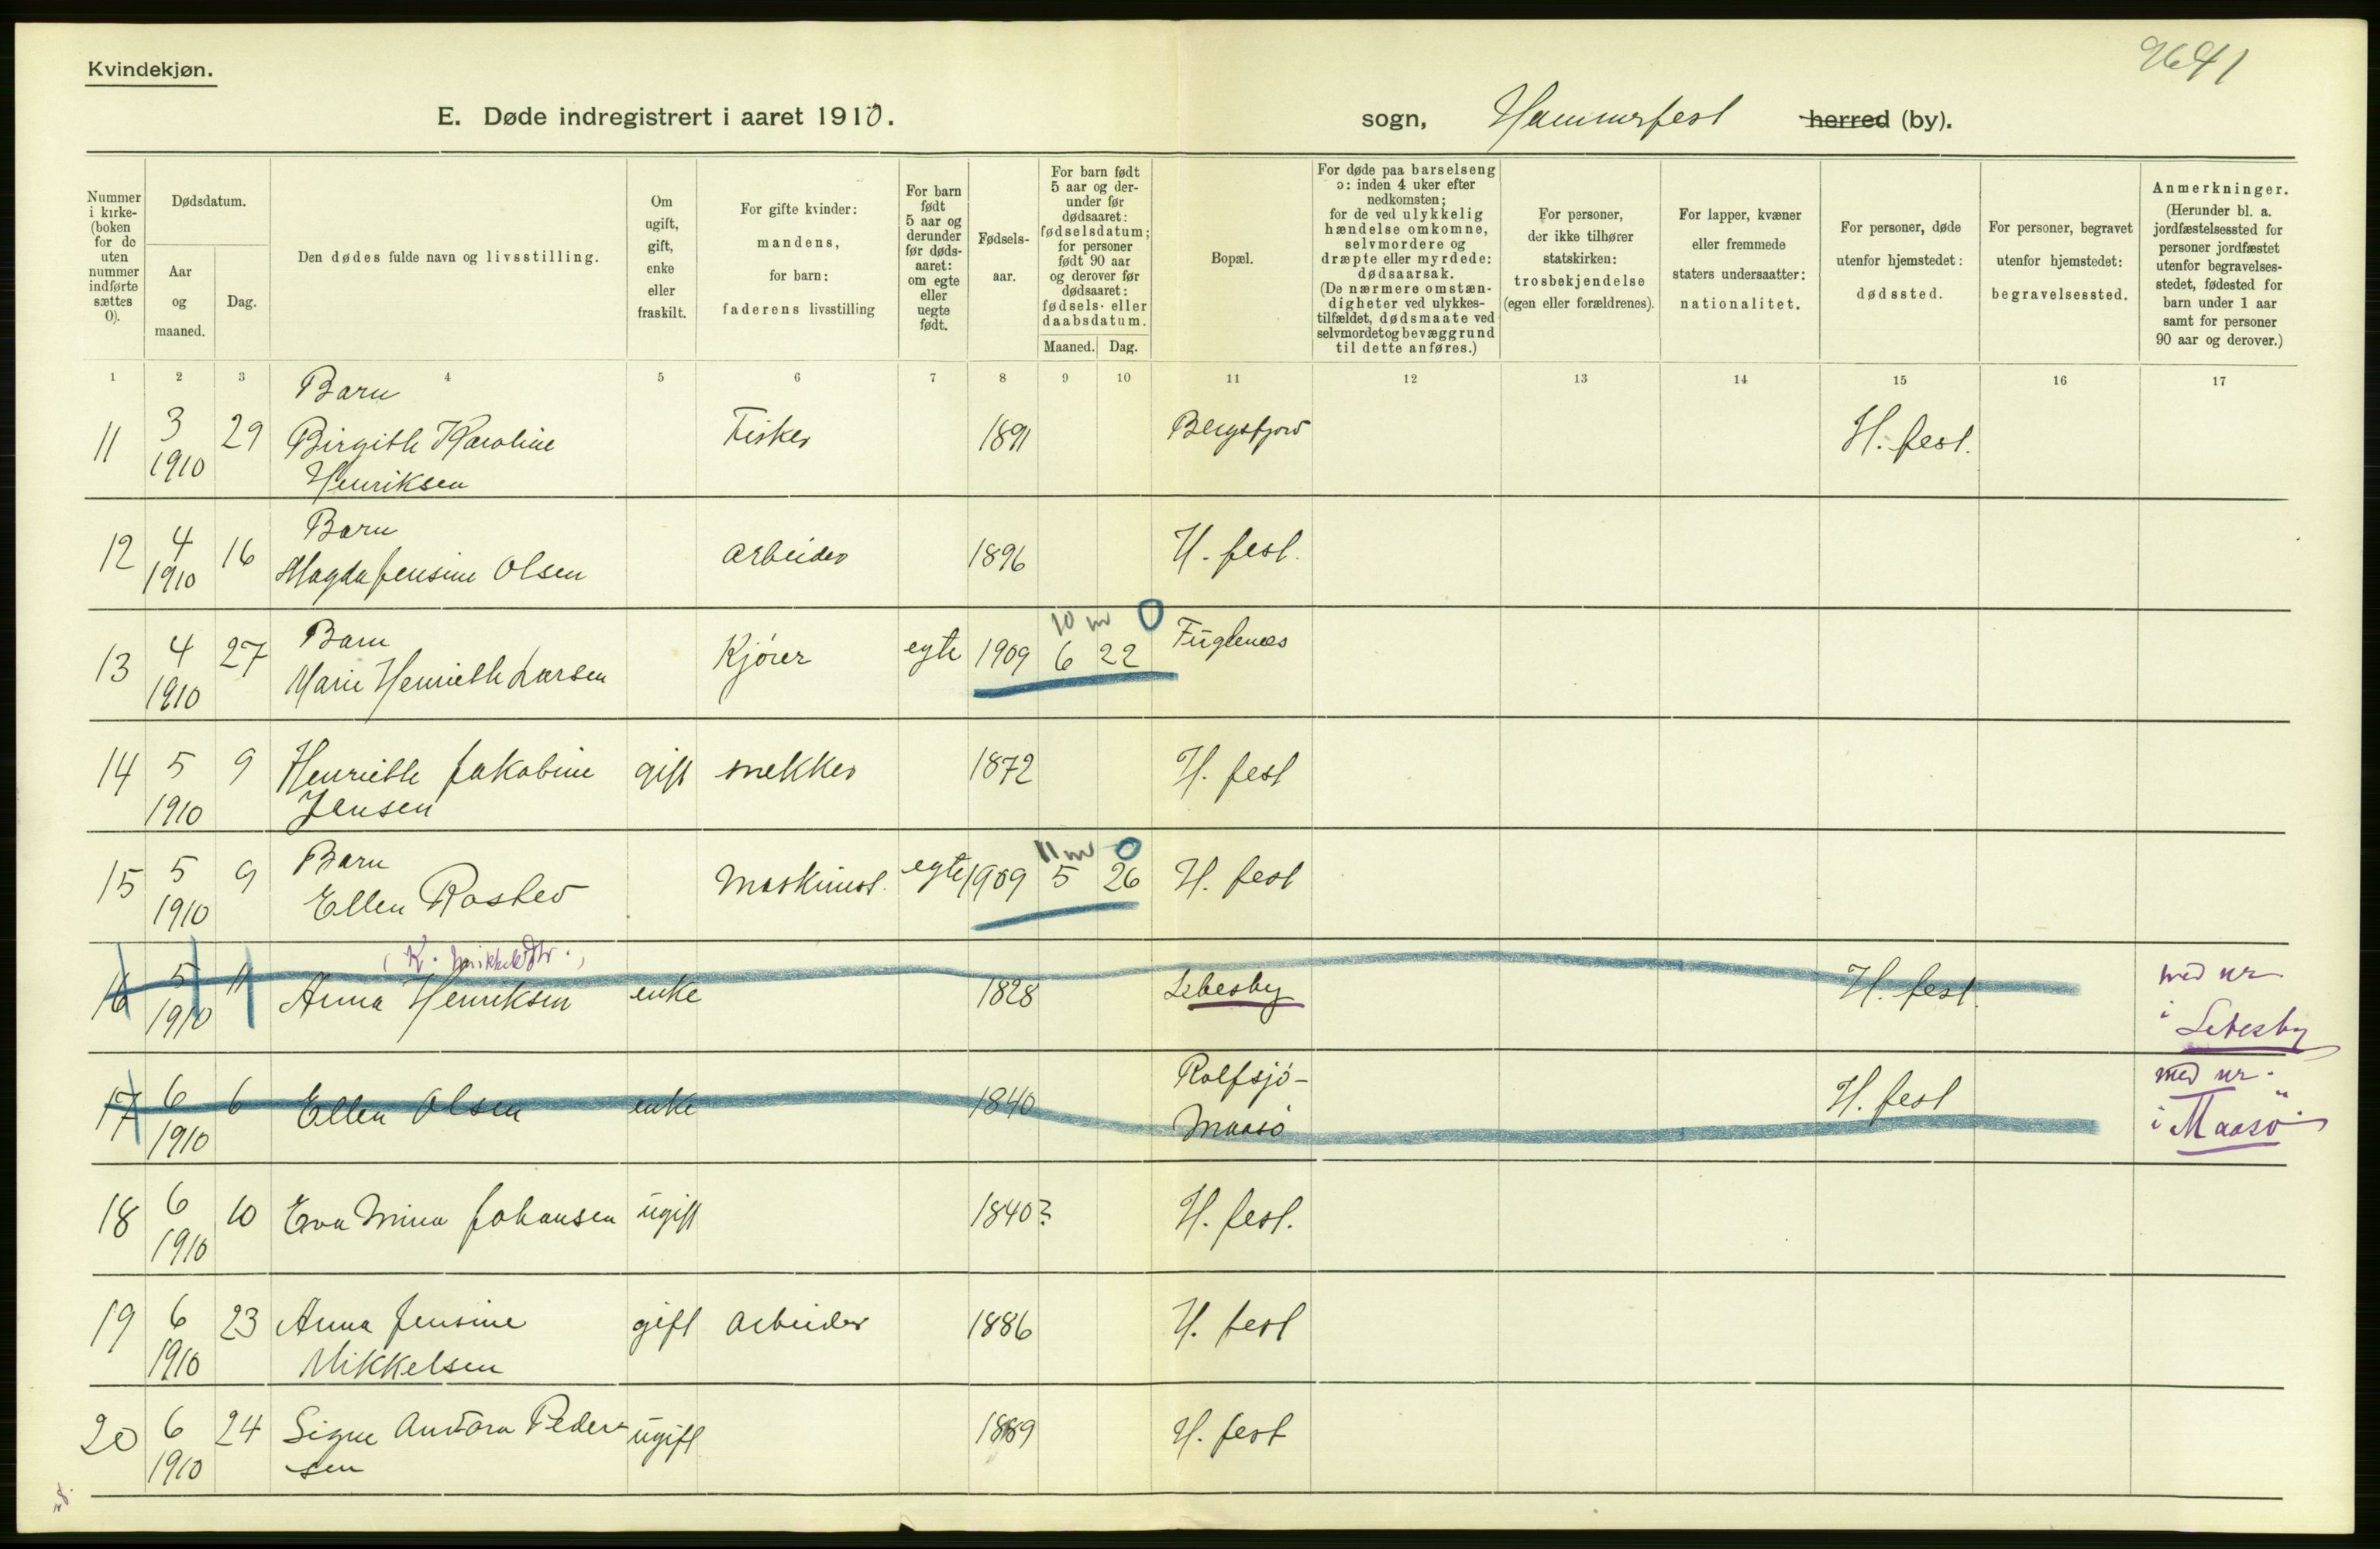 Kvindekjøn.
9641
E. Døde indregistrert i aaret 1910.
sogn, Hammerfest herred (by).
Nummer i kirke- (boken for de uten nummer indførte sættes 0).
Dødsdatum.
Aar og maaned.
Dag.
Den dødes fulde navn og livsstilling.
Om ugift, gift, enke eller fraskilt.
For gifte kvinder: mandens, for barn: faderens livsstilling
For barn født 5 aar og derunder før døds- aaret: om egte eller uegte født.
Fødsels- aar.
For barn født 5 aar og der- under før dødsaaret: fødselsdatum; for personer født 90 aar og derover før dødsaaret: fødsels- eller daabsdatum.
Maaned. Dag.
Bopæl.
For døde paa barselseng ɔ: inden 4 uker efter nedkomsten; for de ved ulykkelig hændelse omkomne, selvmordere og dræpte eller myrdede: dødsaarsak. (De nærmere omstæn- digheter ved ulykkes- tilfældet, dødsmaate ved selvmordet og bevæggrund til dette anføres.)
For personer, der ikke tilhører statskirken: trosbekjendelse (egen eller forældrenes).
For lapper, kvæner eller fremmede staters undersaatter: nationalitet.
For personer, døde utenfor hjemstedet: dødssted.
For personer, begravet utenfor hjemstedet: begravelsessted.
Anmerkninger. (Herunder bl. a. jordfæstelsessted for personer jordfæstet utenfor begravelses- stedet, fødested for barn under 1 aar samt for personer 90 aar og derover.)
1 2 3 4 5 6 7 8 9 10 11 12 13 14 15 16 17
Barn
11 3 29 Birgith Karoline Fisker 1891 Bergsfjord H. fest.
1910 Henriksen
Barn
12 4 16 Magda Jensine Olsen arbeider 1896 H. fest.
1910
10 m 0
Barn
13 4 27 Marie Henriette Larsen Kjører egte 1909 6 22 Fuglenes
1910
14 5 9 Henriette Jakobine gift snekker 1872 H. fest
1910 Jensen
11 m 0
Barn
15 5 9 Ellen Rasker Maskinist. egte 1909 5 26 H. fest
1910
16 5 11 Anna Henriksen enke 1828 Lebesby H. fest. med nr
1910 i Lebesby
17 6 6 Ellen Olsen enke 1840 Rolfsjö- H. fest med nr.
1910 Maasö i Maasö
18 6 10 Eva Mina Johansen ugift 1840? H. fest.
1910
19 6 23 Anna Jensine gift Arbeider 1886 H. fest
1910 Mikkelsen
20 6 24 Signe Andora Peder- ugift 1889 H. fest
1910 sen